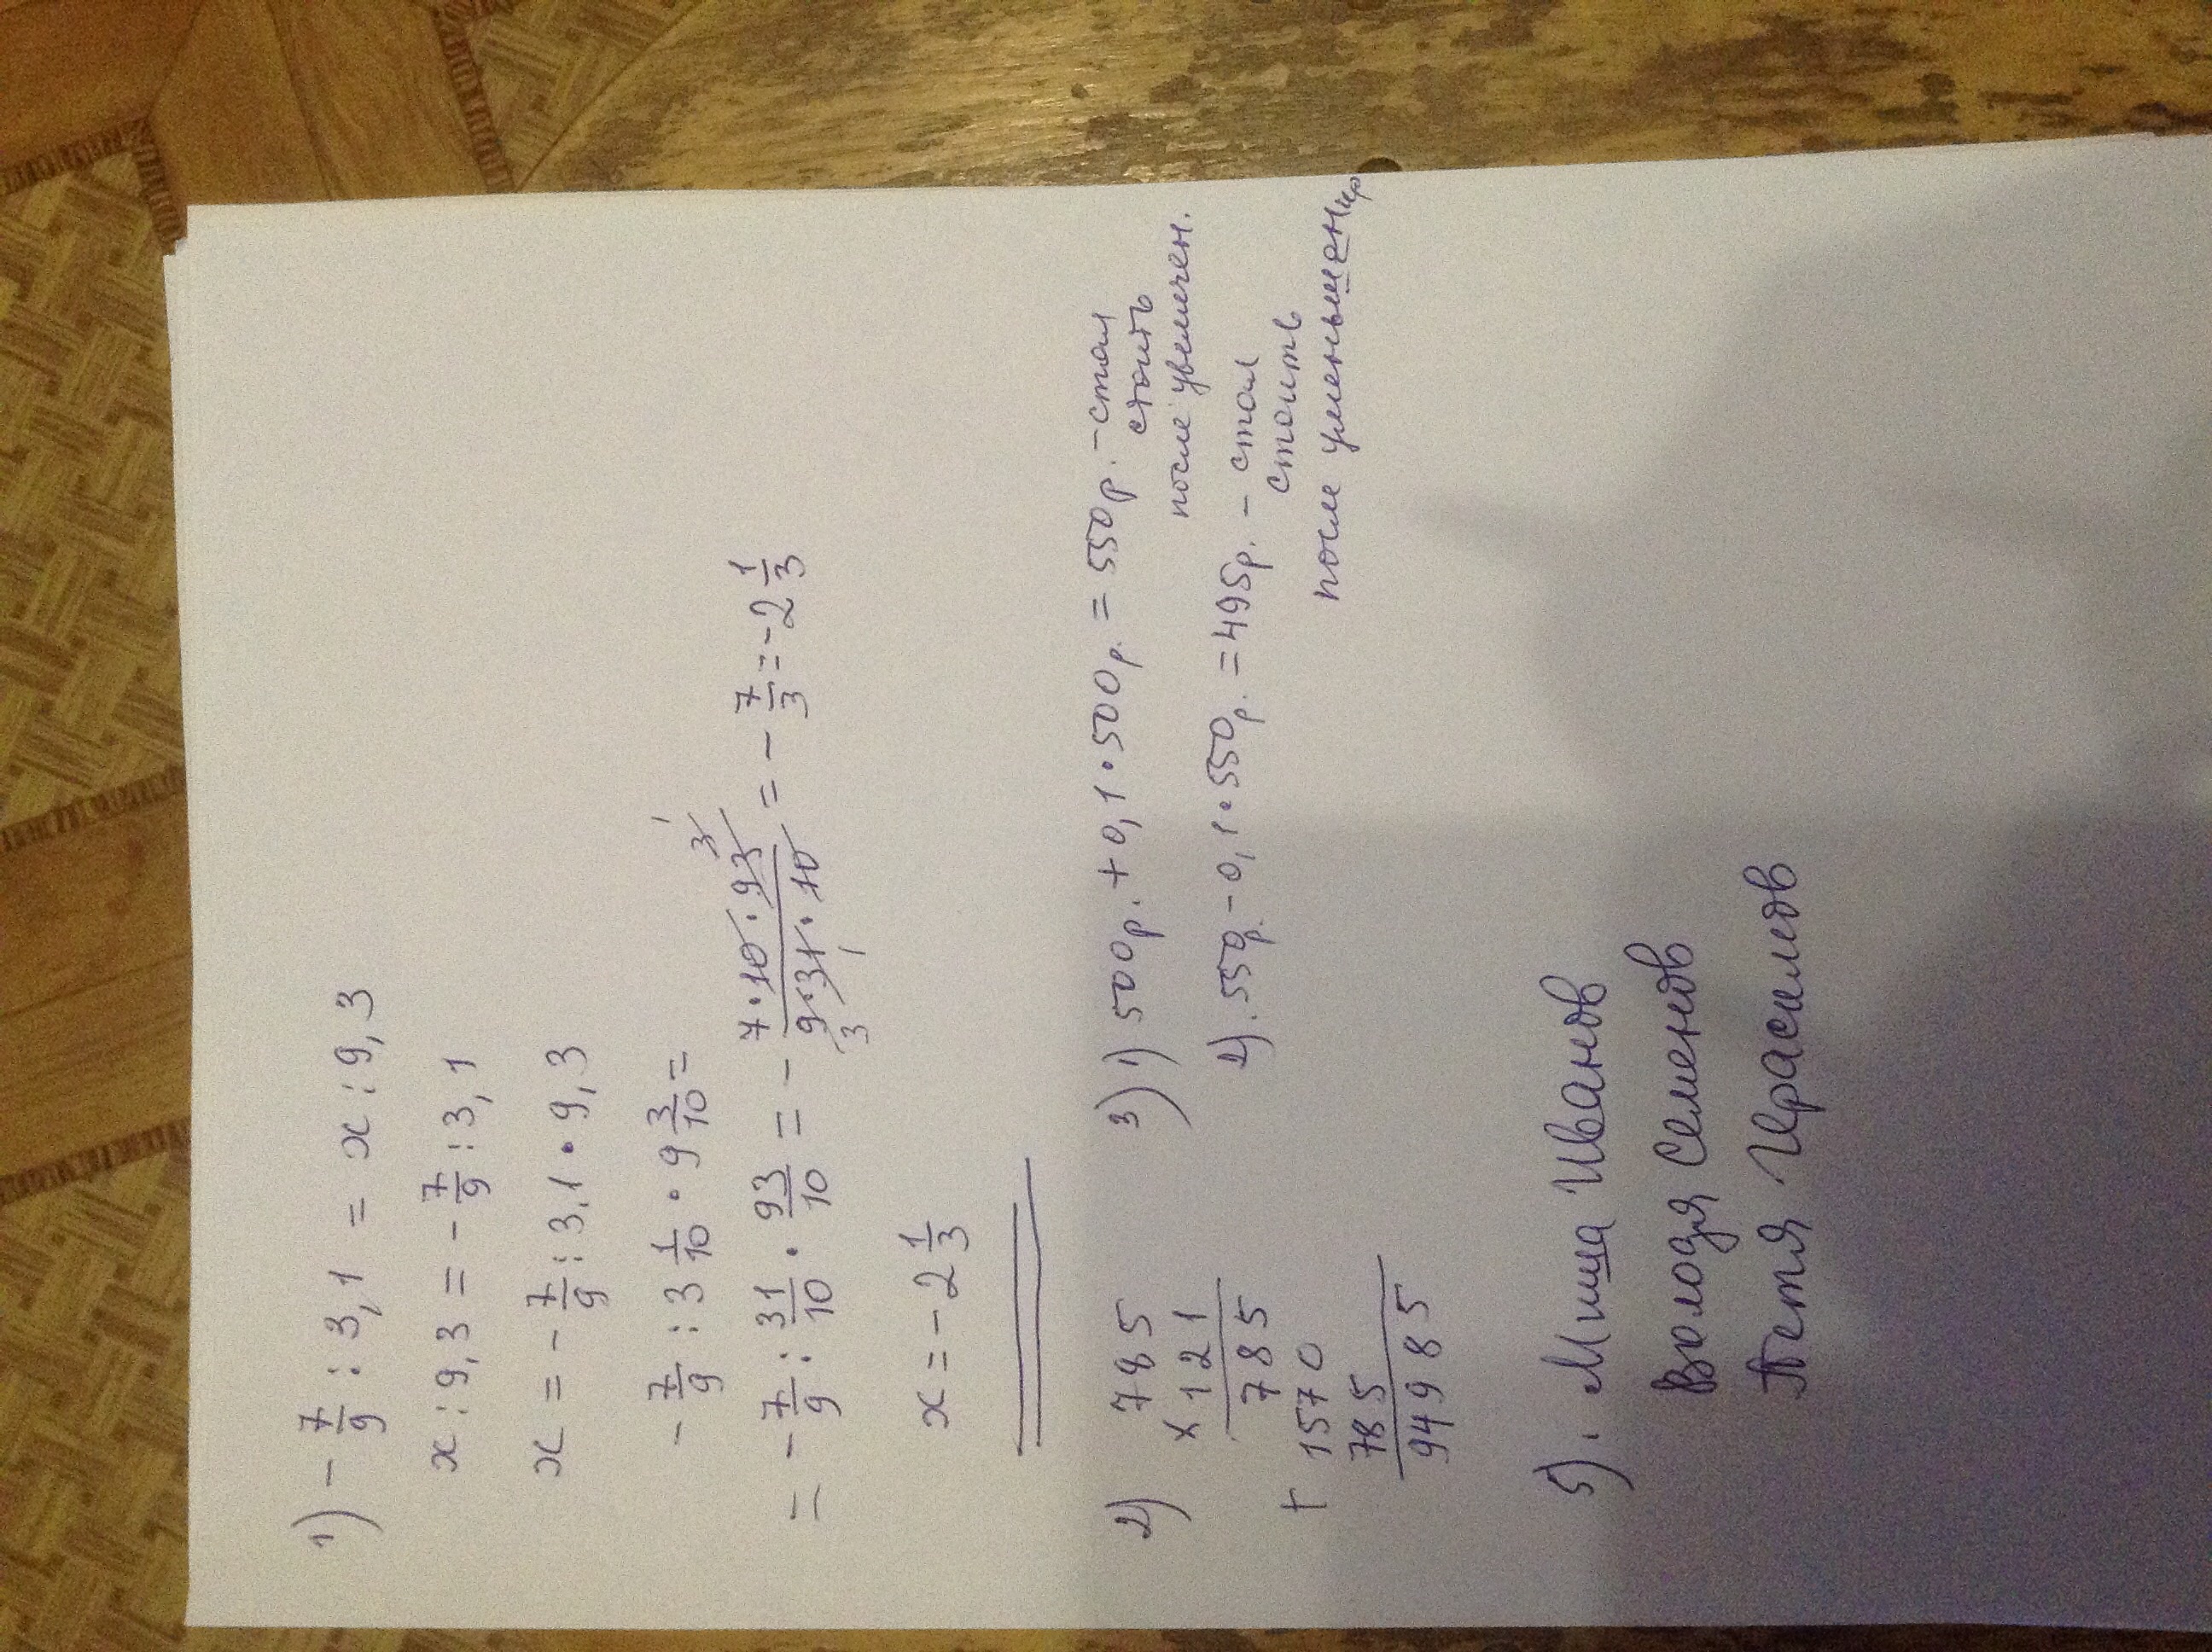 1) - 7/9 : 3,1 = x : 9,3
x : 9,3 = - 7/9 : 3,1
x = - 7/9 : 3,1 • 9,3
- 7/9 : 3 1/10 • 9 3/10 =
= - 7/9 : 31/10 • 93/10 = - 7•10•93/9•31•10 = - 7/3 = -2 1/3
x = -2 1/3
2) 785
x 121
785
+ 1570
785
94985
3) 1) 500р. + 0,1•500р. = 550р. - стал
стоить
после увеличен.
2). 550р. - 0,1•550р. = 495р. - стал
стоить
после уменьшения
5). Миша Иванов
Володя Семенов
Петя Герасимов